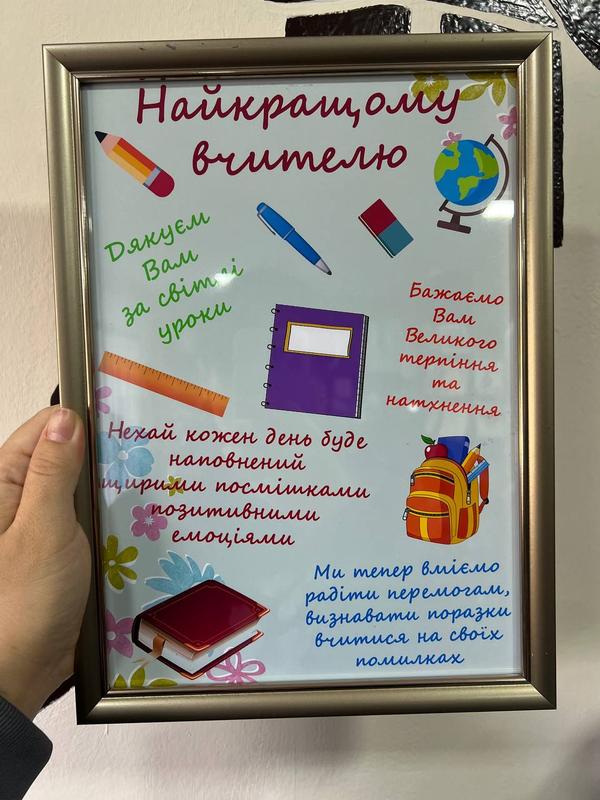 Найкращому
вчителю
Дякуєм
Вам
за світлі
уроки
Бажаємо
Вам
Великого
терпіння
та
натхнення
Нехай кожен день буде
наповнений
щирими посмішками
позитивними
емоціями
Ми тепер вміємо
радіти перемогам,
визнавати поразки
вчитися на своїх
помилках